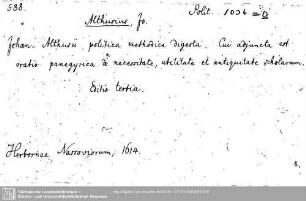 538.
Polit. 1006 = 2
Althusius, Jo.
Johan. Althusii politica methodice digesta. Cui adjuncta est
oratio panegyrica de necessitate, utilitate et antiquitate scholarum.
Editio tertia.
Herbornae Nassoviorum, 1614.
8.
Sächsische Landesbibliothek -
Staats- und Universitätsbibliothek Dresden